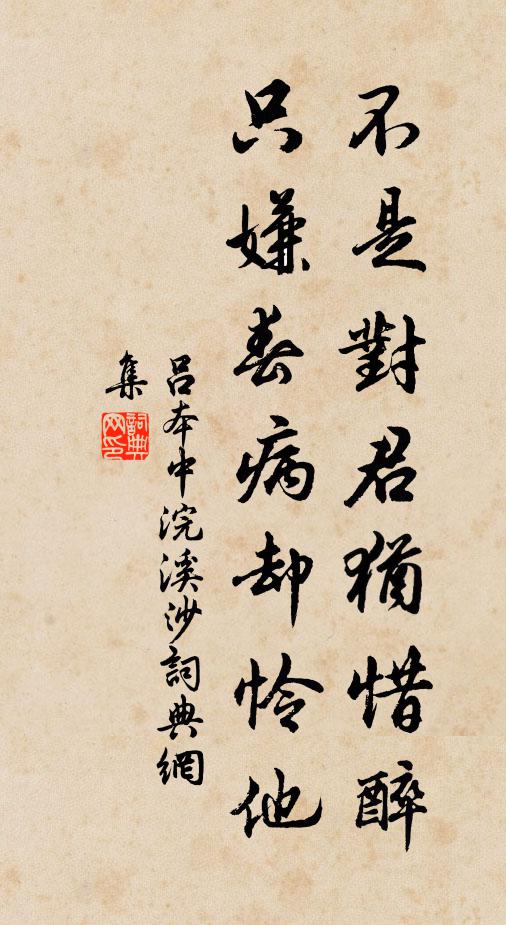 不是對君猶惜醉
只嫌春病却怜他
呂本中浣溪沙詞典網
集
詞典网印